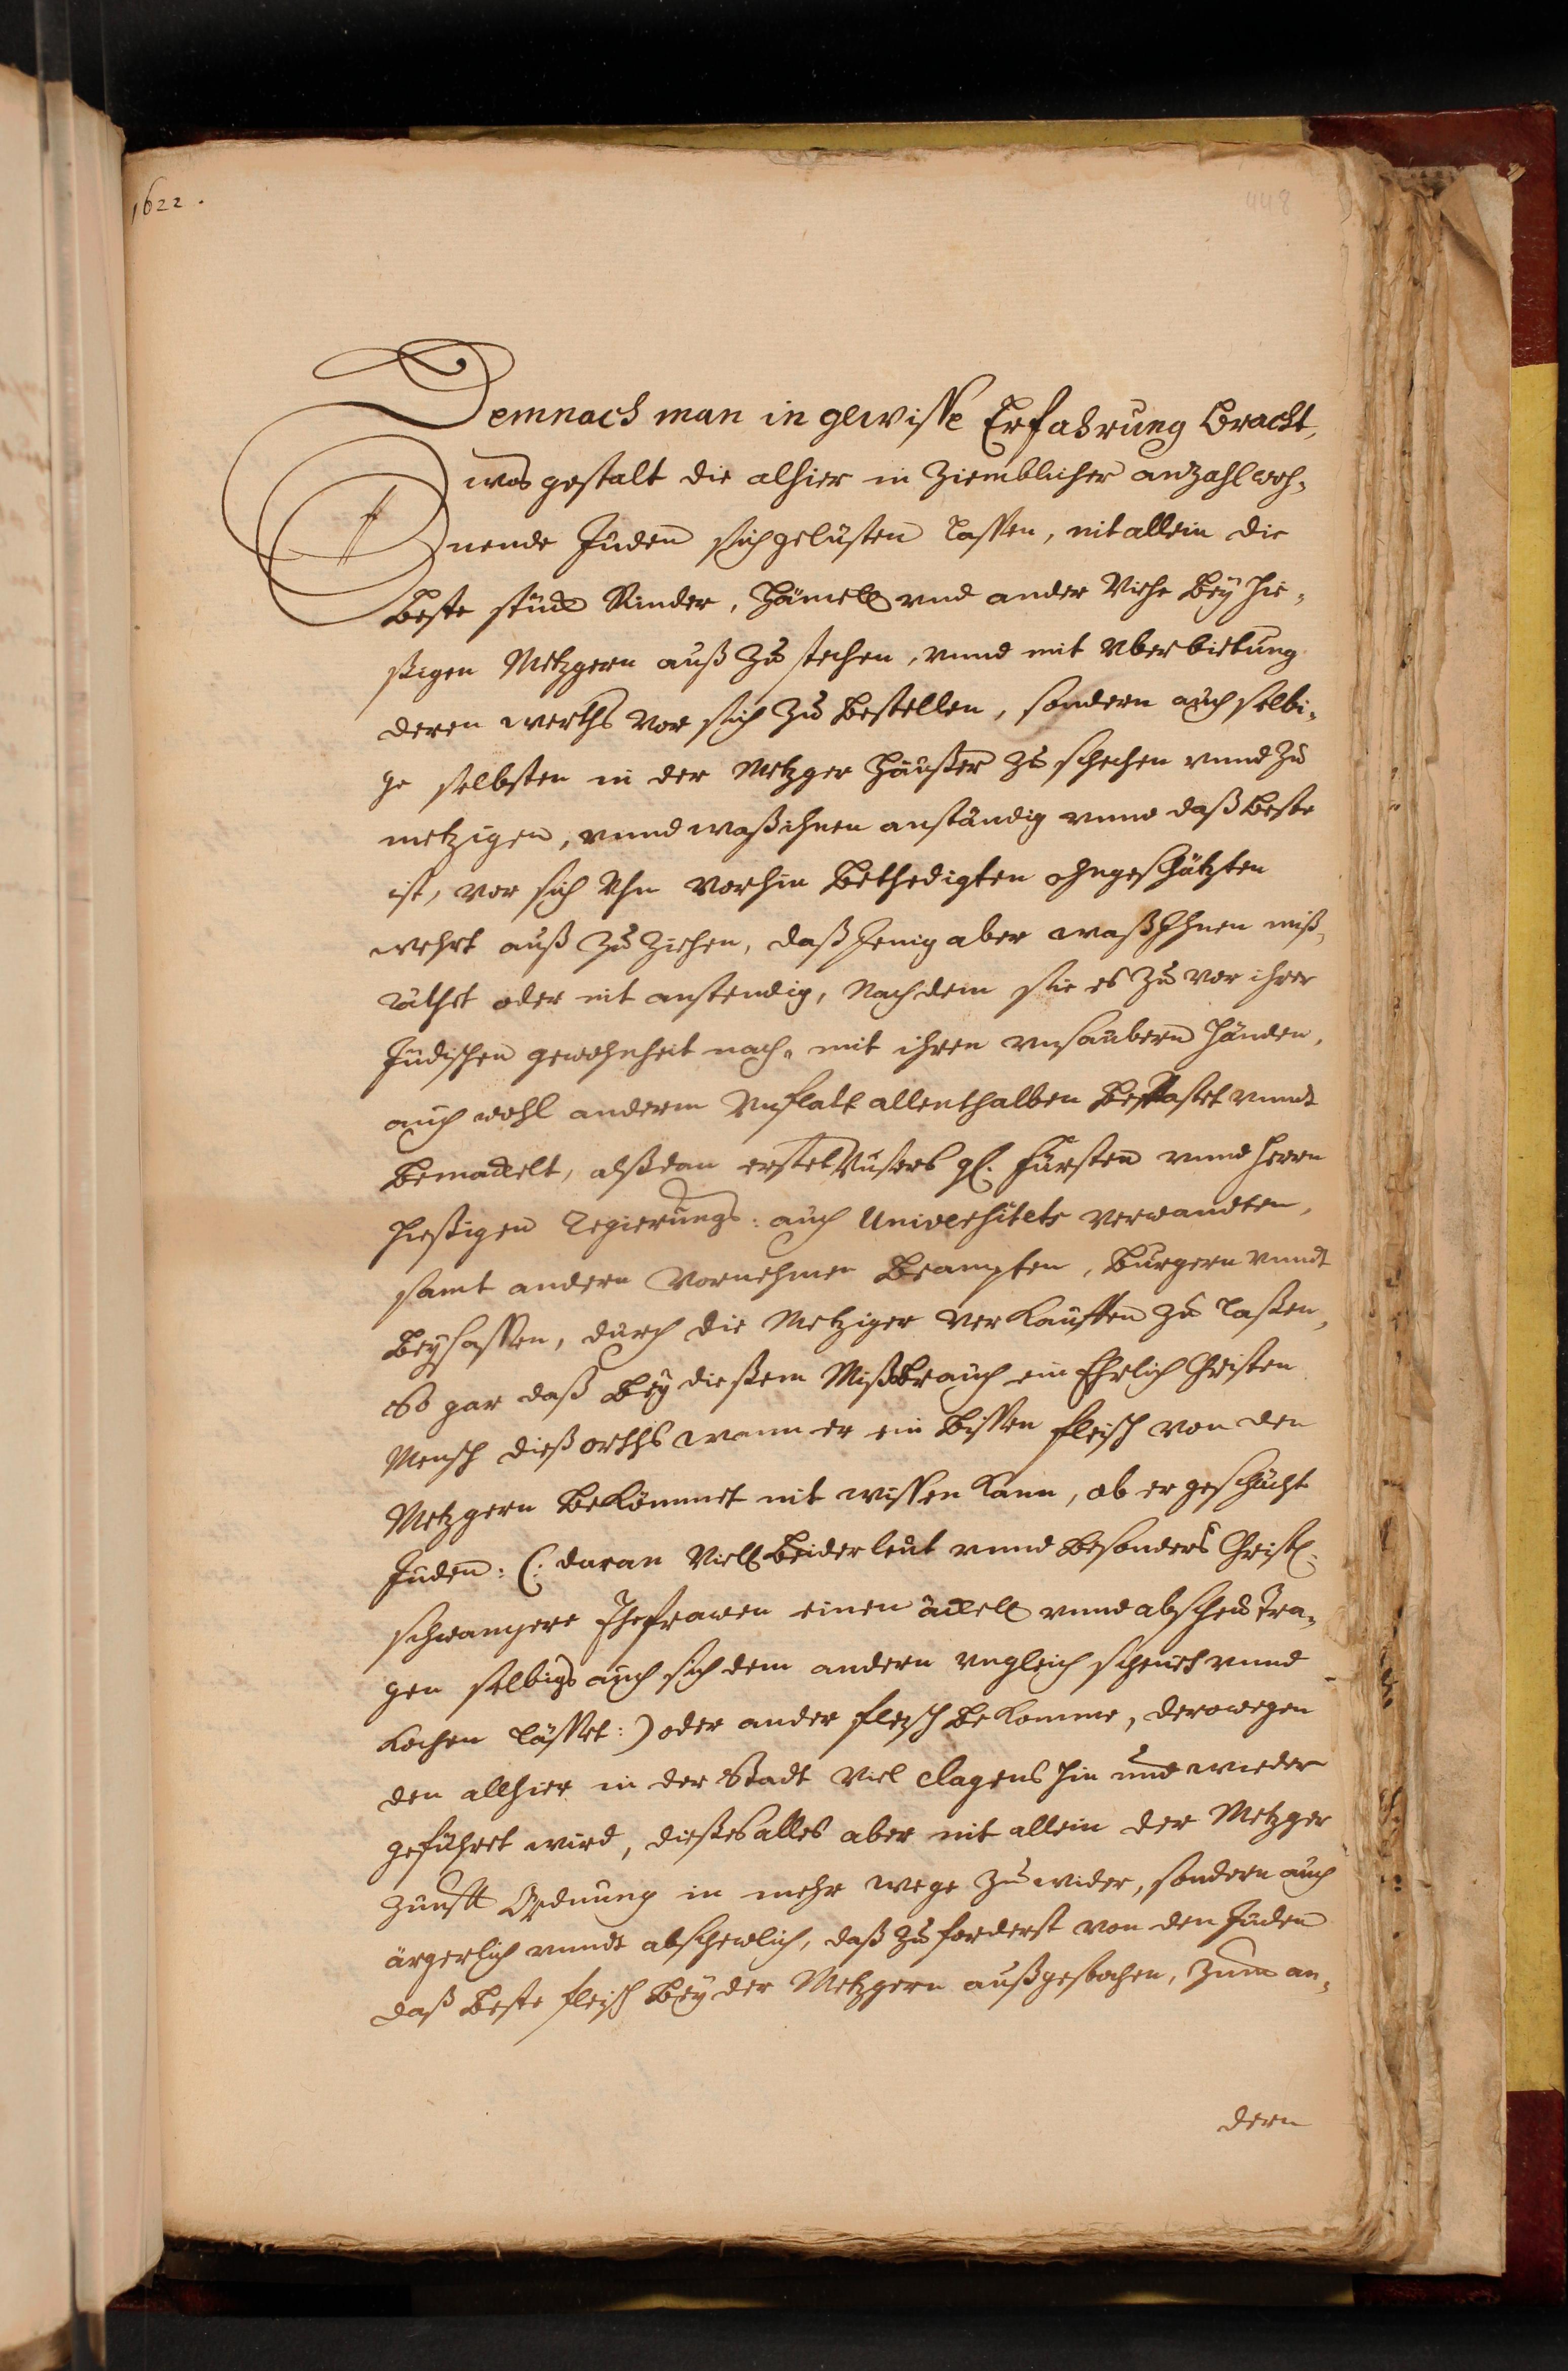 1622.
448
Demnach man in gewisse Erfahrung bracht,
was gestalt die alhier in Ziemblicher anZahl woh„
nende Juden sich gelüsten lassen, nit allein die
beste stück Rinder, Hämell vnd ander Viehe bey hie„
sigen Metzgern auß Zu stechen, vnnd mit Vberbietung
deren werths vor sich Zu bestellen, sondern auch selbi„
ge selbsten in der Metzger Häußer Zu schechen vnnd Zu
metzigen, vnnd waß ihnen anständig vnnd daß beste
ist, vor sich Ihn vorhin bethedigten ohngeschätzten
wehrt auß Zu Ziehen, daß Jenig aber waß Ihnen miß„
räthet oder nit anstendig, Nachdem sie es Zu vor ihrer
Jüdischen gewohnheit nach, mit ihren vnsaubern Händen,
auch wohl anderm Vnflatt allenthalben betastet vnndt
bemackelt, alßdan erstet Vnsers gl. Fürsten vnnd Herrn
hießigen Regierungs: auch Universitets verwandten,
samt andern Vornehmen beampten, burgern vnndt
beysassen, durch die Metziger verkauffen Zu laßen,
So gar daß bey dießem Mißbrauch ein Ehrlich Christen
Mensch dieß orths wann er ein bissen fleisch von den
Metzgern bekömmet nit wissen kann, ob er geschächt
Juden: (: daran Viell biderleut vnnd besonders Christl.
schwangere Ehefrawen einen äckell vnnd abscheu tra„
gen selbigs auch sich dem andern vngleich scheuet vnnd
kochen lässet:) oder ander fleisch bekomme, derowegen
den allhier in der Stadt viel clagens hin und wieder
geführet wird, dießes alles aber nit allein der Metzger
Zunfft Ordnung in mehr wege Zuwider, sondern auch
ärgerlich vnndt abschewlich, daß Zu forderst von den Juden
daß beste fleisch bey der Metzgern außgestochen, Zum an„
dern